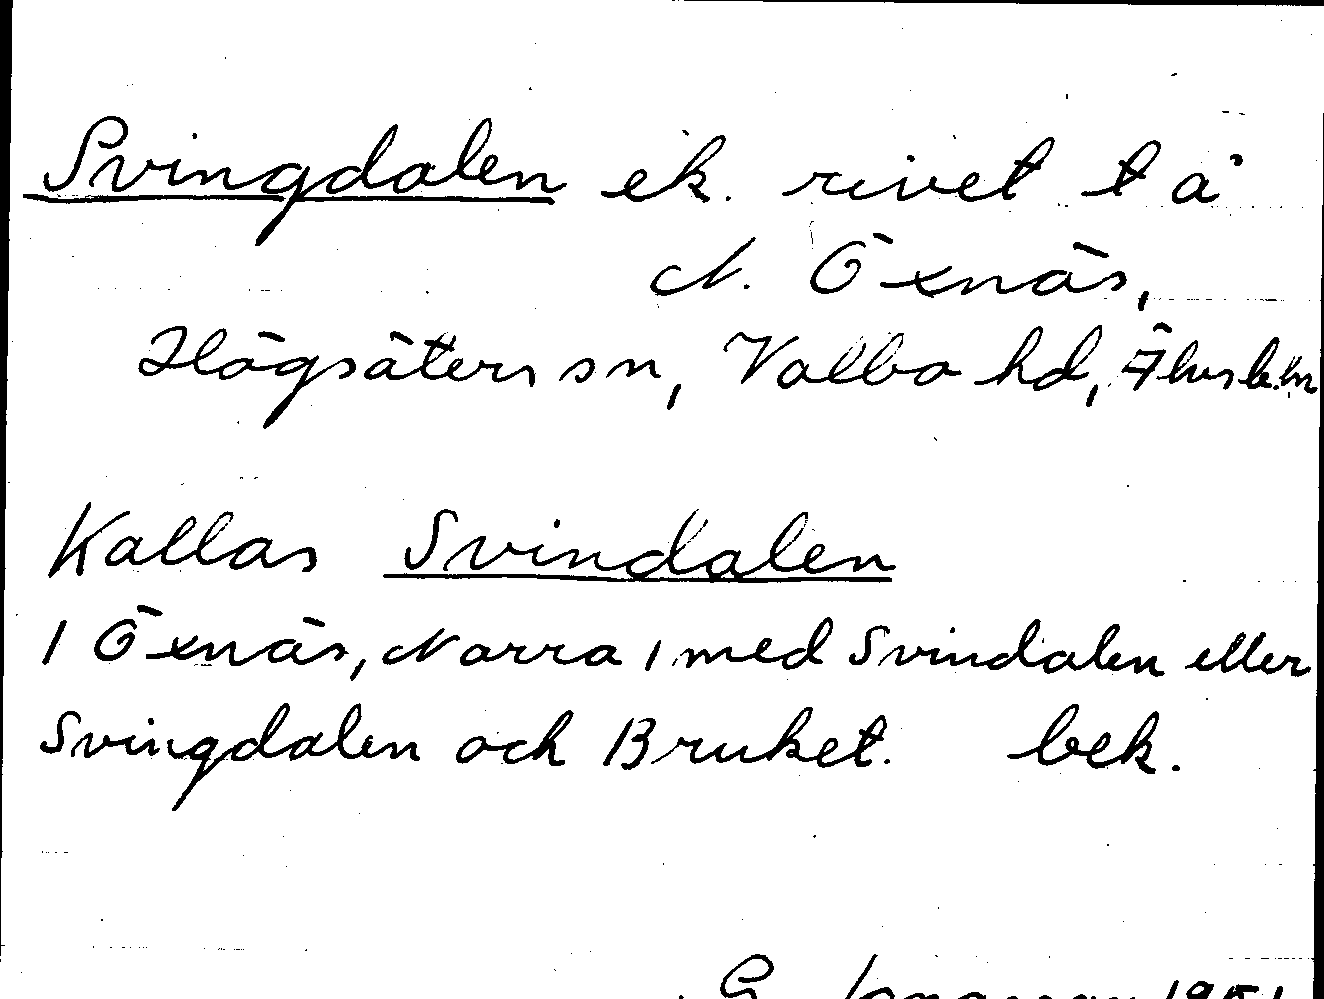 Svingdalen ek. rivet t å
N. Öxnäs,
Högsäters sn, Valbo hd, Älvsb. ln
Kallas Svindalen
1 Öxnäs, Norra 1 med Svindalen eller
Svingdalen och Bruket. bek.